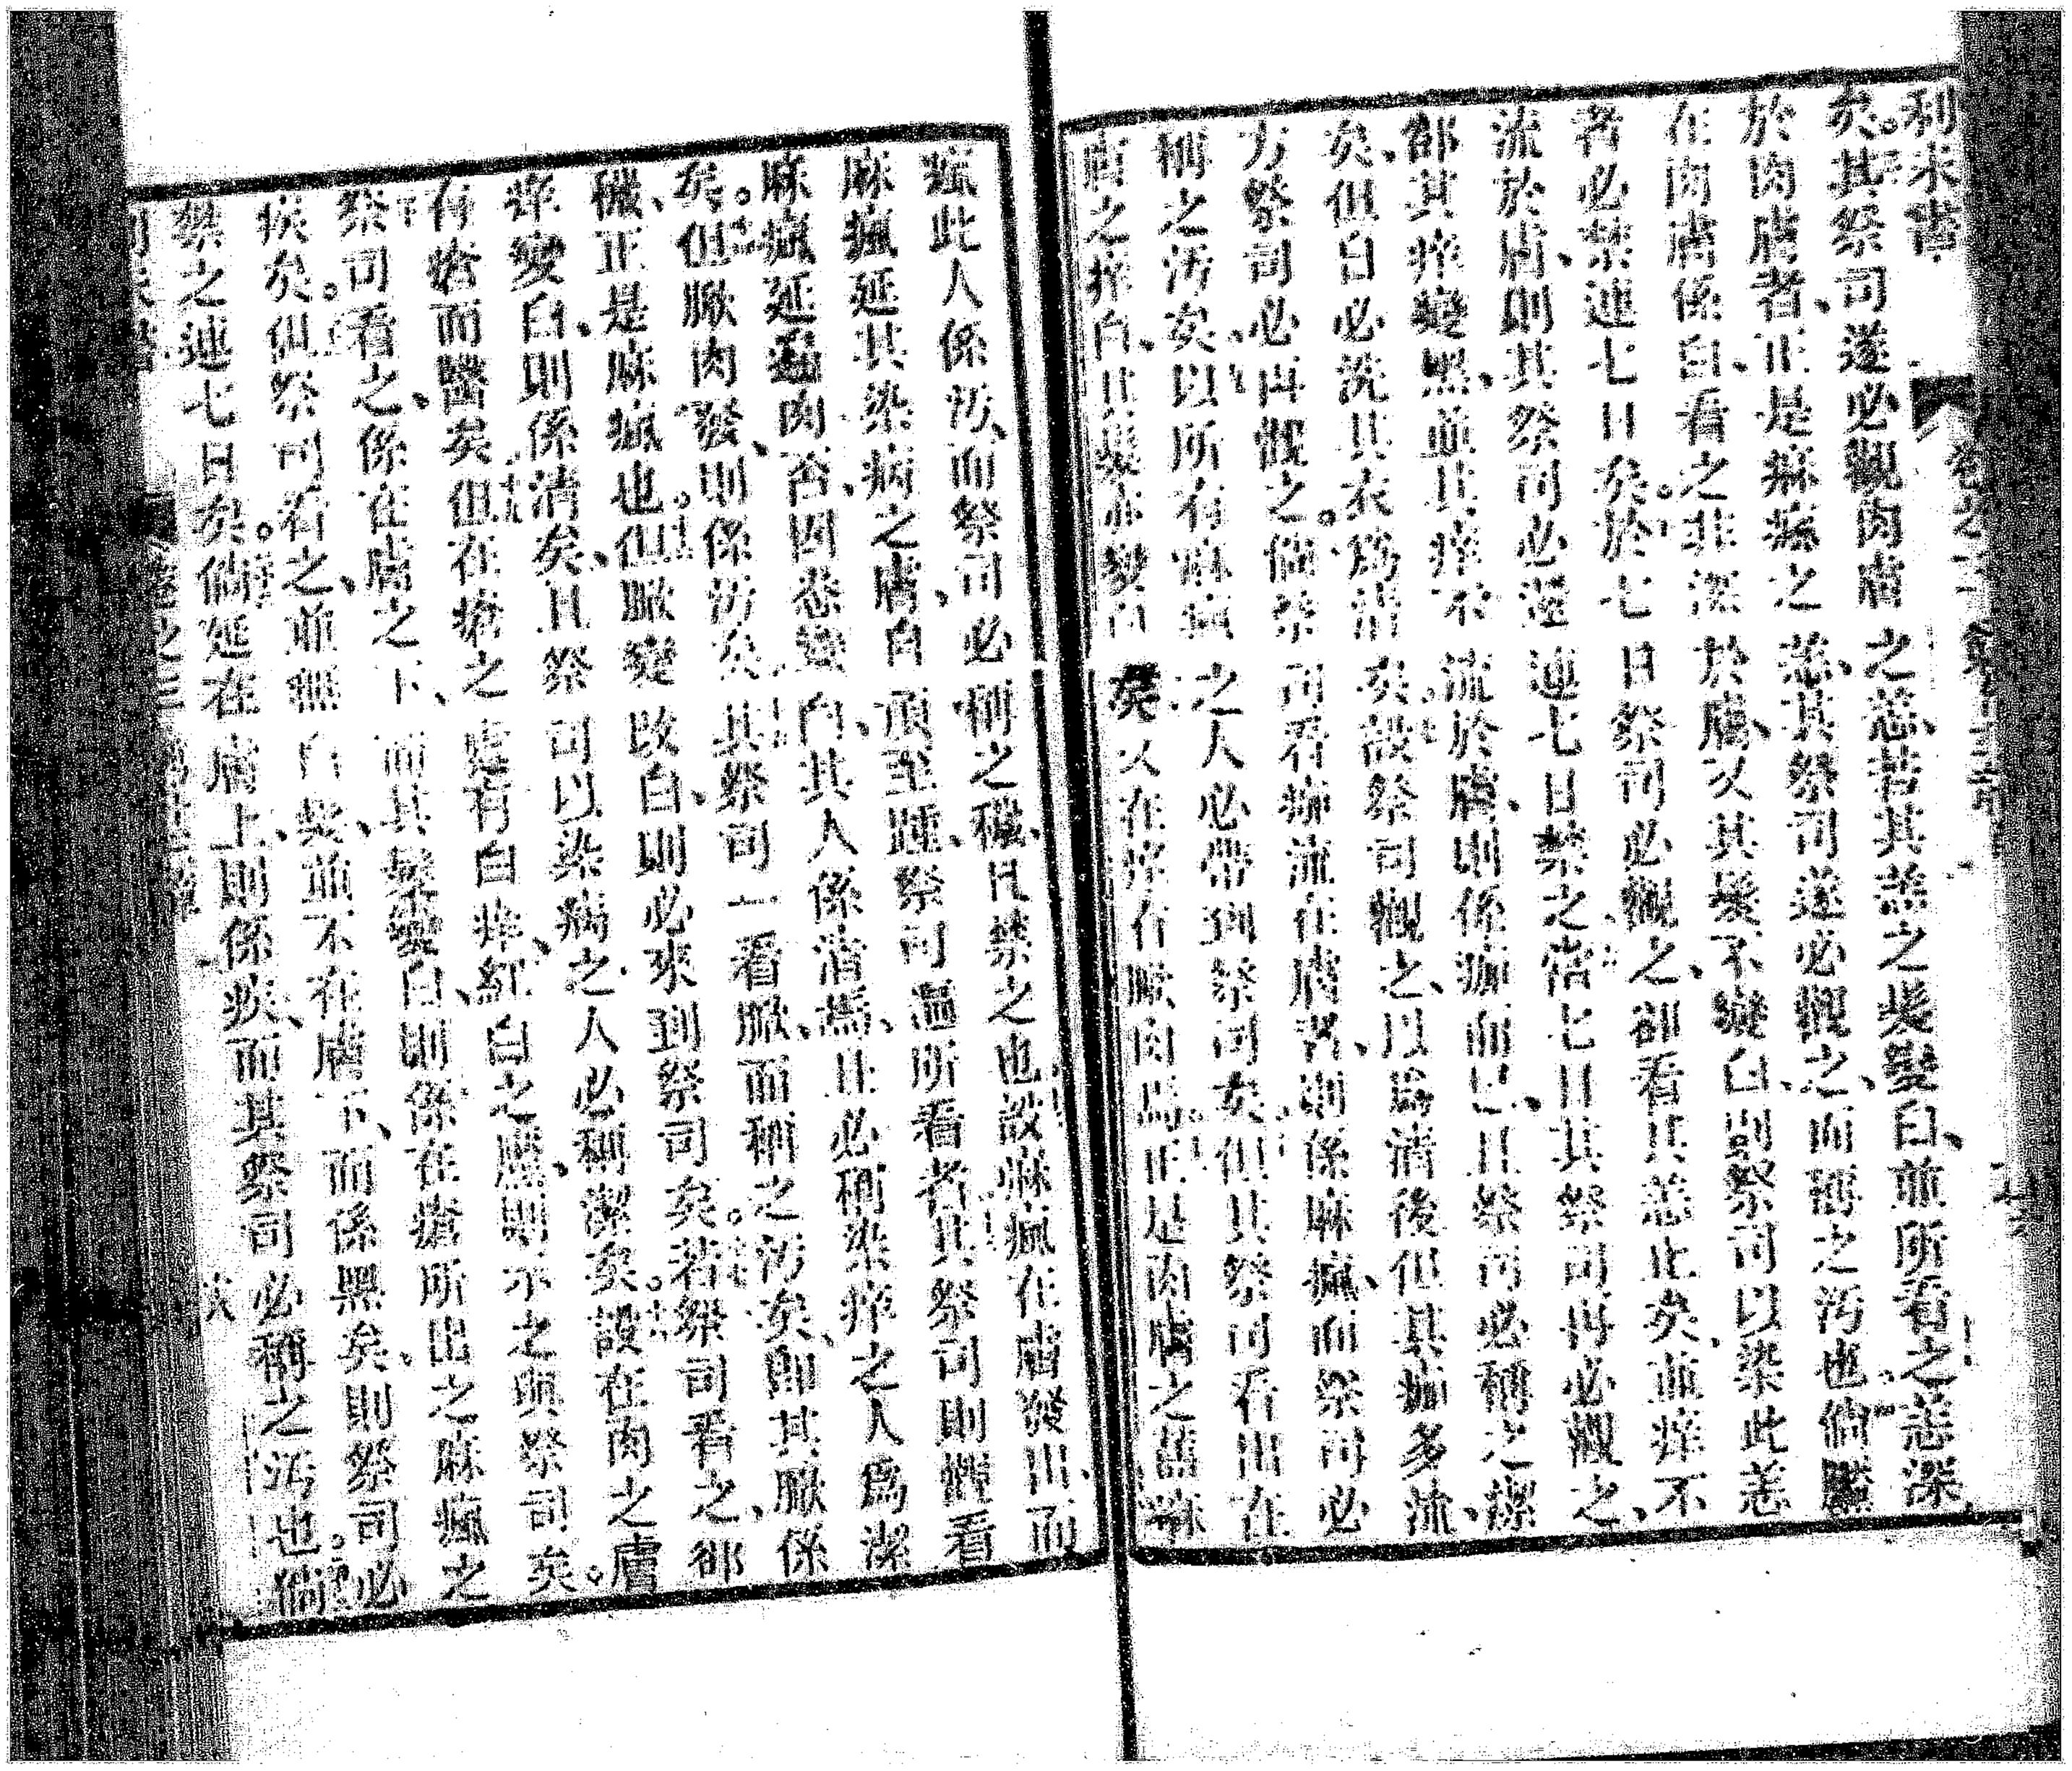 利未書 卷之三 第十三章 十六
矣。其祭司遂必觀肉膚之恙、若其恙之髮變白、並所看之恙深
於肉膚者、正是痳瘋之恙、其祭司遂必觀之、而稱之汚也。倘
在肉膚係白、看之非深於膚、又其髮不變白、則祭司以染此恙
者必禁連七日矣。於七日祭司必觀之、卻看其恙止矣、並痒不
流於膚、則其祭司必還連七日禁之、當七日其祭司再必觀之、
卻其痒變黑、並其痒不流於膚、則係癤而已、且祭司必稱之潔
矣、但曰必洗其衣爲清矣。設祭司觀之、以爲清後但其癤多流、
方祭司必再觀之。倘祭司看癤流在膚者、則係麻瘋、而祭司必
稱之汚矣、以所有痳瘋之人必帶到祭司矣。但其祭司看出在
膚之痒白、且髮亦變白矣、又在痒有厥肉焉、正是肉膚之舊痳
瘋、此人係汚、而祭司必稱之穢、且禁之也。設痳瘋在膚發出、而
麻瘋延其染病之膚、自頂至踵、祭司遍所看者、其祭司則體看
麻瘋延遍肉否、因恙變白、其人係淸焉、且必稱染痒之人爲潔
矣。但厥肉發、則係汚矣、其祭司一看厥、而稱之汚矣、即其厥係
穢、正是麻瘋也。但厥變改白、則必來到祭司矣。若祭司看之、卻
痒變白、則係清矣、且祭司以染病之人必稱潔矣。設在肉之膚
有瘡而醫矣、但在瘡之處有白痒、紅白之、則示之與祭司矣。
祭司看之、係在膚之下、而其髮變白、則係在瘡所出之麻瘋之
疾矣。但祭司看之、並無白髮、並不在膚下、而係黑矣、則祭司必
禁之連七日矣。倘延在膚上、則係疾、而其祭司必稱之汚也。倘
利未書 卷之三 第十三章 十八